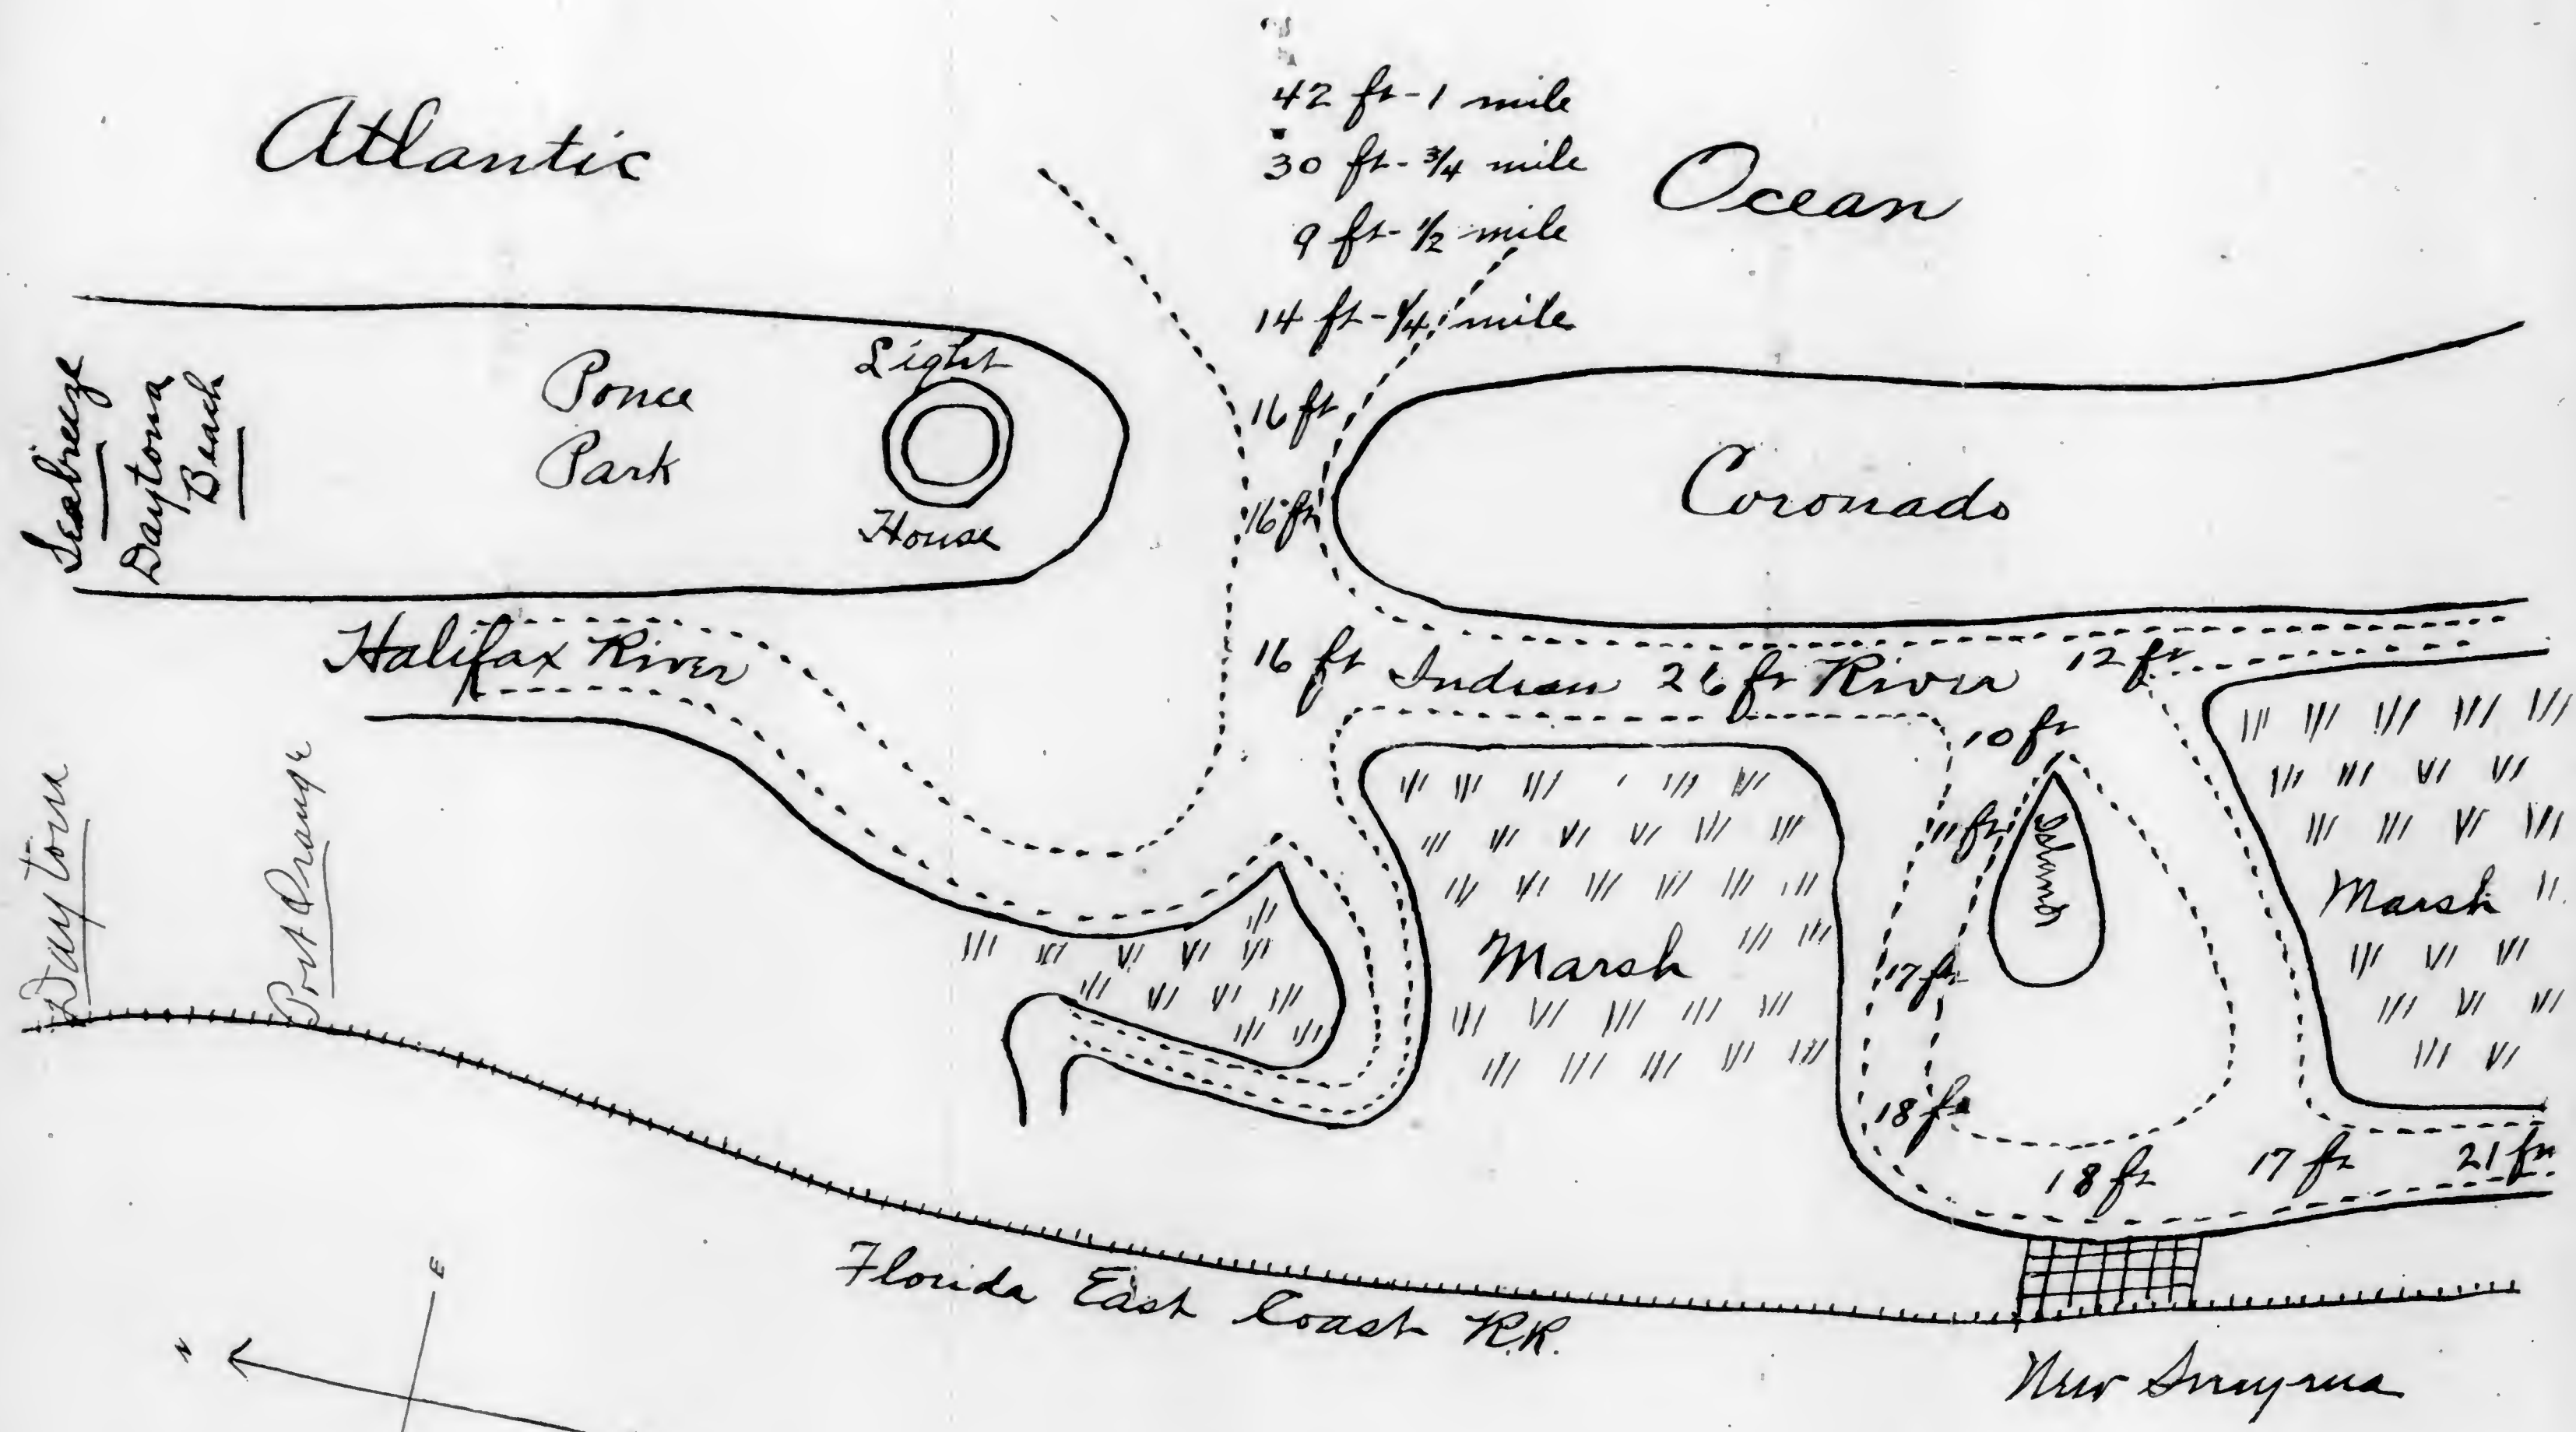 Atlantic
Ocean
42 ft - 1 mile
30 ft - 3/4 mile
9 ft - 1/2 mile
14 ft - 1/4 mile
16 ft
16 ft
16 ft
Seabreeze
Daytona
Beach
Ponce
Park
Light
House
Coronado
Halifax River
Indian 26 ft River
12 ft
10 ft
11 ft
Island
17 ft
18 ft
18 ft
17 ft
21 ft
Marsh
Marsh
Daytona
Port Orange
Florida East Coast R.R.
New Smyrna
E
N